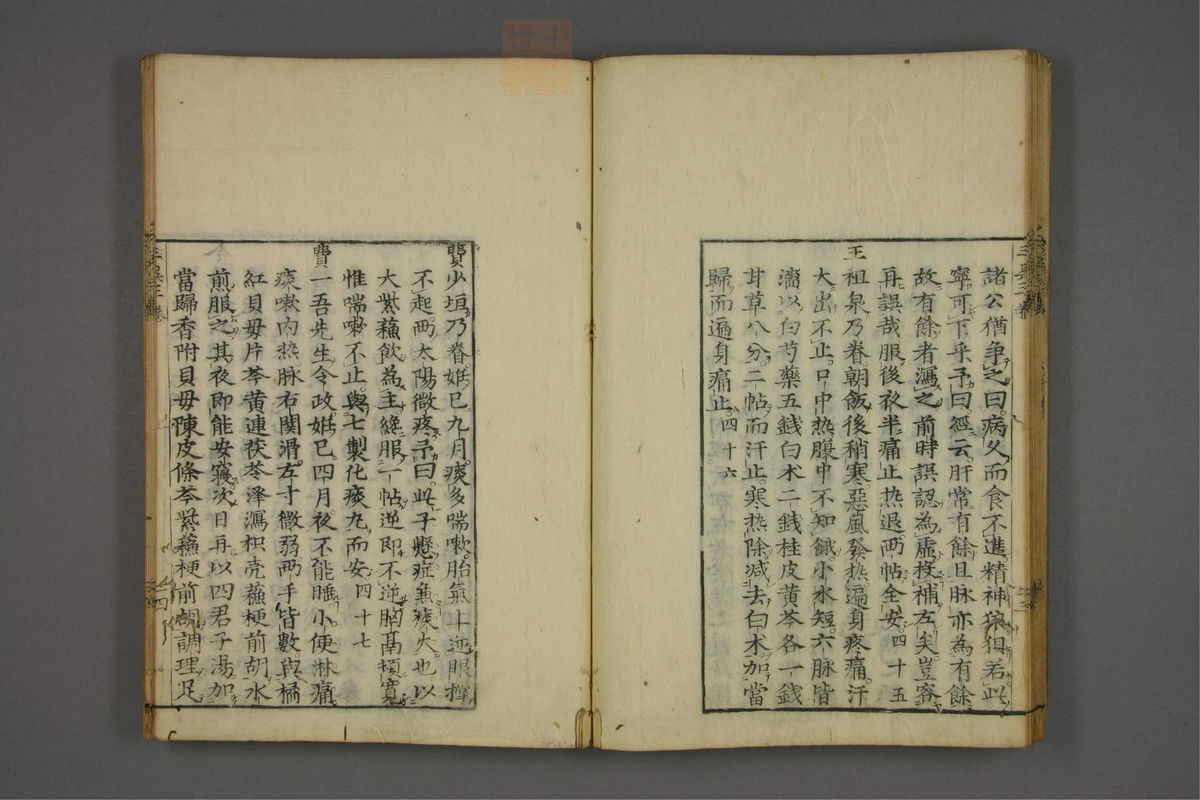 諸公猶争之曰病久而食不進精神狼狽若此
寧可下乎予曰經云肝常有餘且脉亦為有餘
故有餘者瀉之前時誤認為虛投補左矣豈容
再誤哉服後夜半痛止热退两帖全安四十五
王祖泉乃眷朝飯後稍寒惡風發热遍身疼痛汗
大出不止口中热腹中不知餓小水短六脉皆
濇以白芍藥五錢白术二錢桂皮黄芩各一錢
甘草八分二帖而汗止寒热除减去白术加當
歸而遍身痛止四十六
費少垣乃眷姙已九月痰多喘嗽胎氣上逆眼撑
不起两太陽微疼予曰此子懸症兼痰火也以
大紫蘓飲為主纔服一帖逆即不逆胸膈頓寛
惟喘嗽不止與七製化痰丸而安四十七
費一吾先生令政姙已四月夜不能睡小便淋痛
痰嗽内热脉右関滑左寸微弱两手皆數與橘
紅貝毋片芩黄連茯苓澤瀉枳壳蘓梗前胡水
煎服之其夜即能安寢次日再以四君子湯加
當歸香附貝毋陳皮條芩紫蘓梗前胡調理足